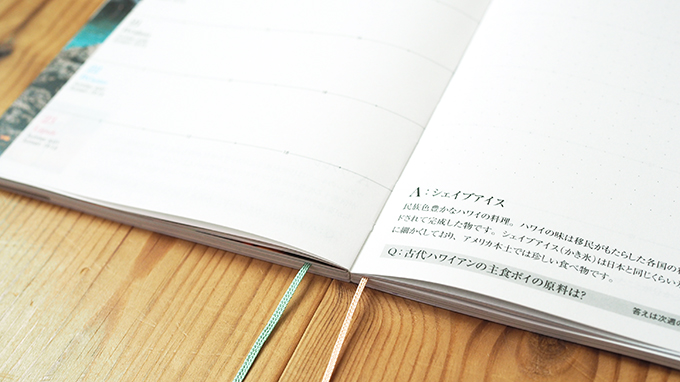 A：シェイブアイス
民族色豊かなハワイの料理。ハワイの味は移民がもたらした各国の
ドされて完成した物です。シェイブアイス（かき氷）は日本と同じくらい
に細かくしており、アメリカ本土では珍しい食べ物です。
Q：古代ハワイアンの主食ポイの原料は？
答えは次週の